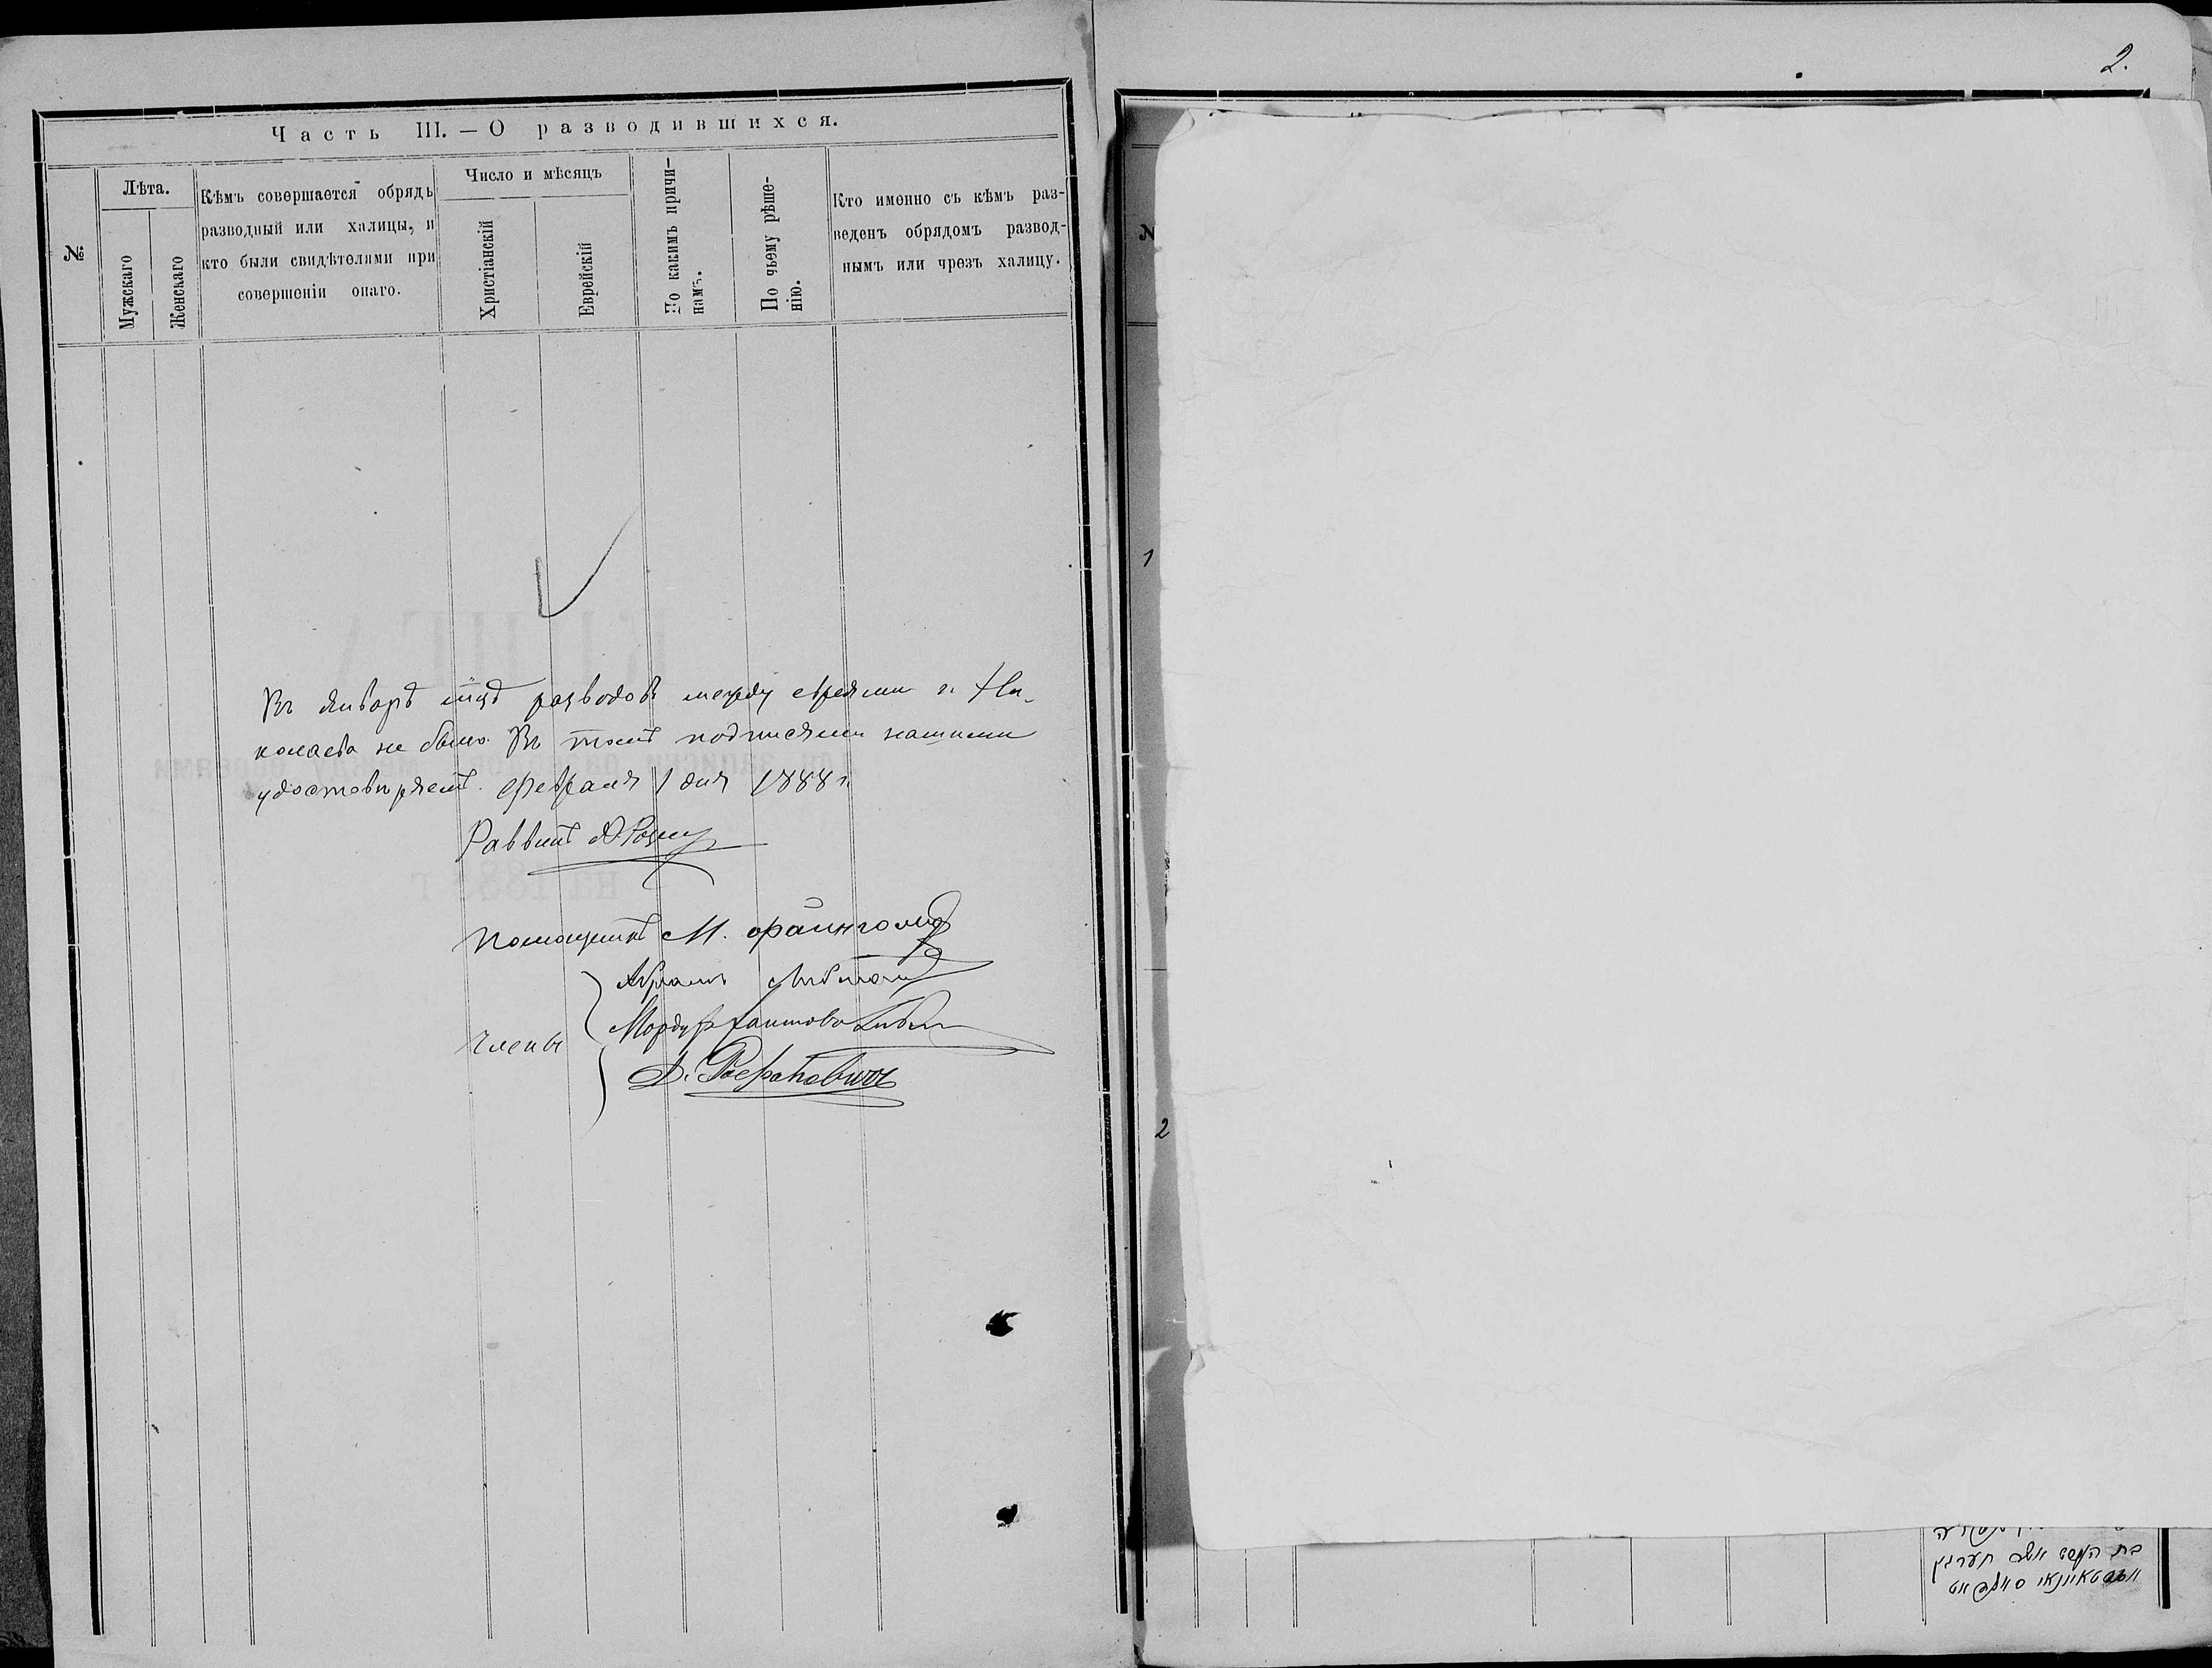 2.
Часть III. — О разводившихся.
№
Лѣта.
Мужскаго
Женскаго
Кѣмъ совершается обрядъ
разводный или халицы, и
кто были свидѣтелями при
совершеніи онаго.
Число и мѣсяцъ
Христіанскій
Еврейскій
По какимъ причи-
намъ.
По чьему рѣше-
нію.
Кто именно съ кѣмъ раз-
веденъ обрядомъ развод-
нымъ или чрезъ халицу.
Въ Январѣ м̃цѣ разводовъ между евреями г. Ни-
колаева не было. Въ томъ подписями нашими
удостовѣряемъ. Февраля 1 дня 1888 г.
Раввинъ
Помощникъ М. Файнгольд
Абрамъ
Члены
Мордух Хаимовъ
Д. Рафаловичъ
1
2
בת